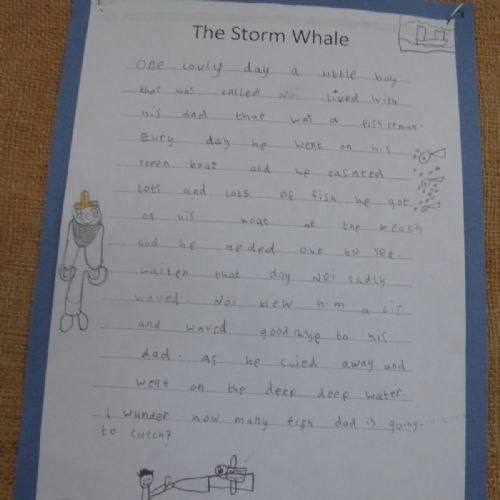 The Storm Whale
One lovly day a little boy
that was called Noi lived with
his dad that was a fisherman.
Evry day he went on his
boat and he
lots and lots of fish he got
on his boat at the beach
and he heded out to sea.
that day Noi sadly
waved. Noi blew him a cis
and waved goodbye to his
dad. As he saied away and
went on the deep deep water.
I wunder how many fish dad is going
to catch?